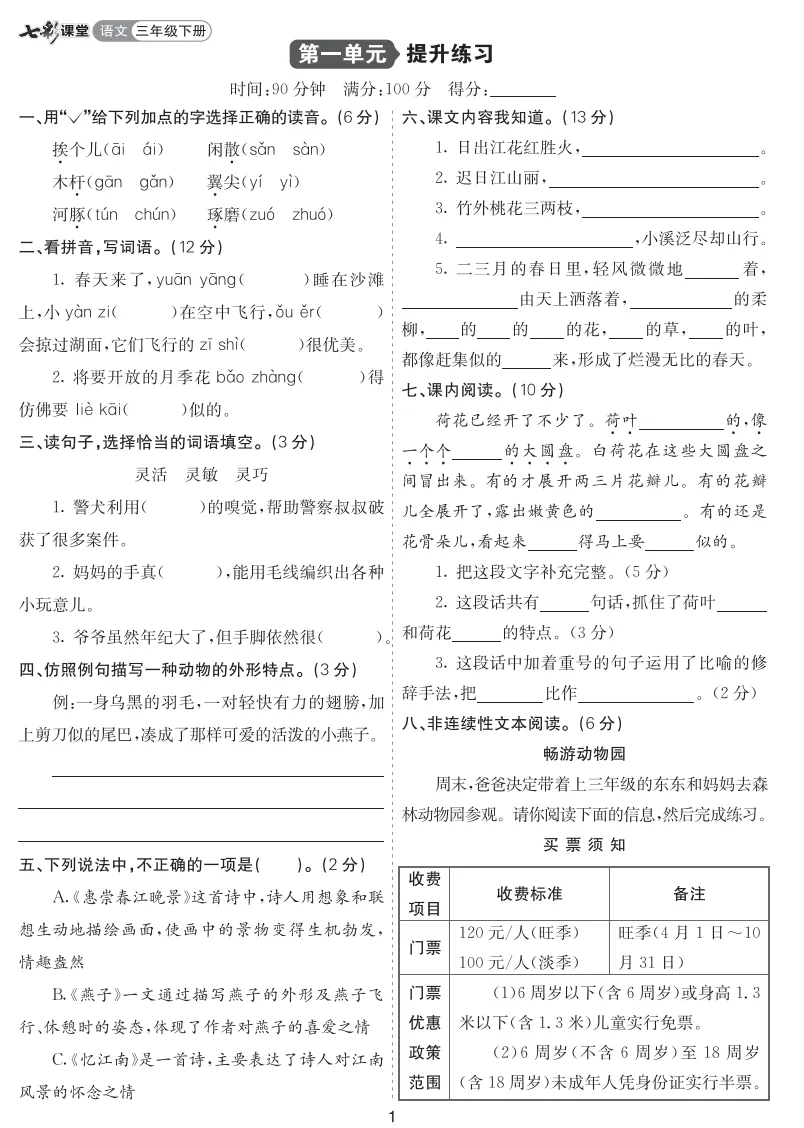 七彩课堂 语文 三年级下册
第一单元 提升练习
时间:90分钟 满分:100分 得分:
一、用“✓”给下列加点的字选择正确的读音。(6分)
挨个儿(āi ái) 闲散(sǎn sàn)
木杆(gān gǎn) 翼尖(yí yì)
河豚(tún chún) 琢磨(zuó zhuó)
二、看拼音,写词语。(12分)
1. 春天来了,yuān yāng( )睡在沙滩
上,小 yàn zi( )在空中飞行,ǒu ěr( )
会掠过湖面,它们飞行的 zī shì( )很优美。
2. 将要开放的月季花 bǎo zhàng( )得
仿佛要 liè kāi( )似的。
三、读句子,选择恰当的词语填空。(3分)
灵活 灵敏 灵巧
1. 警犬利用( )的嗅觉,帮助警察叔叔破
获了很多案件。
2. 妈妈的手真( ),能用毛线编织出各种
小玩意儿。
3. 爷爷虽然年纪大了,但手脚依然很( )。
四、仿照例句描写一种动物的外形特点。(3分)
例:一身乌黑的羽毛,一对轻快有力的翅膀,加
上剪刀似的尾巴,凑成了那样可爱的活泼的小燕子。
五、下列说法中,不正确的一项是( )。(2分)
A.《惠崇春江晚景》这首诗中,诗人用想象和联
想生动地描绘画面,使画中的景物变得生机勃发,
情趣盎然
B.《燕子》一文通过描写燕子的外形及燕子飞
行、休憩时的姿态,体现了作者对燕子的喜爱之情
C.《忆江南》是一首诗,主要表达了诗人对江南
风景的怀念之情
六、课文内容我知道。(13分)
1. 日出江花红胜火,。
2. 迟日江山丽,。
3. 竹外桃花三两枝,。
4. ,小溪泛尽却山行。
5. 二三月的春日里,轻风微微地 着,
由天上洒落着, 的柔
柳, 的 的 的花, 的草, 的叶,
都像赶集似的 来,形成了烂漫无比的春天。
七、课内阅读。(10分)
荷花已经开了不少了。荷叶 的,像
一个个 的大圆盘。白荷花在这些大圆盘之
间冒出来。有的才展开两三片花瓣儿。有的花瓣
儿全展开了,露出嫩黄色的 。有的还是
花骨朵儿,看起来 得马上要 似的。
1. 把这段文字补充完整。(5分)
2. 这段话共有 句话,抓住了荷叶
和荷花 的特点。(3分)
3. 这段话中加着重号的句子运用了比喻的修
辞手法,把 比作 。(2分)
八、非连续性文本阅读。(6分)
畅游动物园
周末,爸爸决定带着上三年级的东东和妈妈去森
林动物园参观。请你阅读下面的信息,然后完成练习。
买票须知
收费
项目 收费标准 备注
门票 120元/人(旺季) 旺季(4月1日～10
100元/人(淡季) 月31日)
门票 (1)6周岁以下(含6周岁)或身高1.3
优惠 米以下(含1.3米)儿童实行免票。
政策 (2)6周岁(不含6周岁)至18周岁
范围 (含18周岁)未成年人凭身份证实行半票。
1